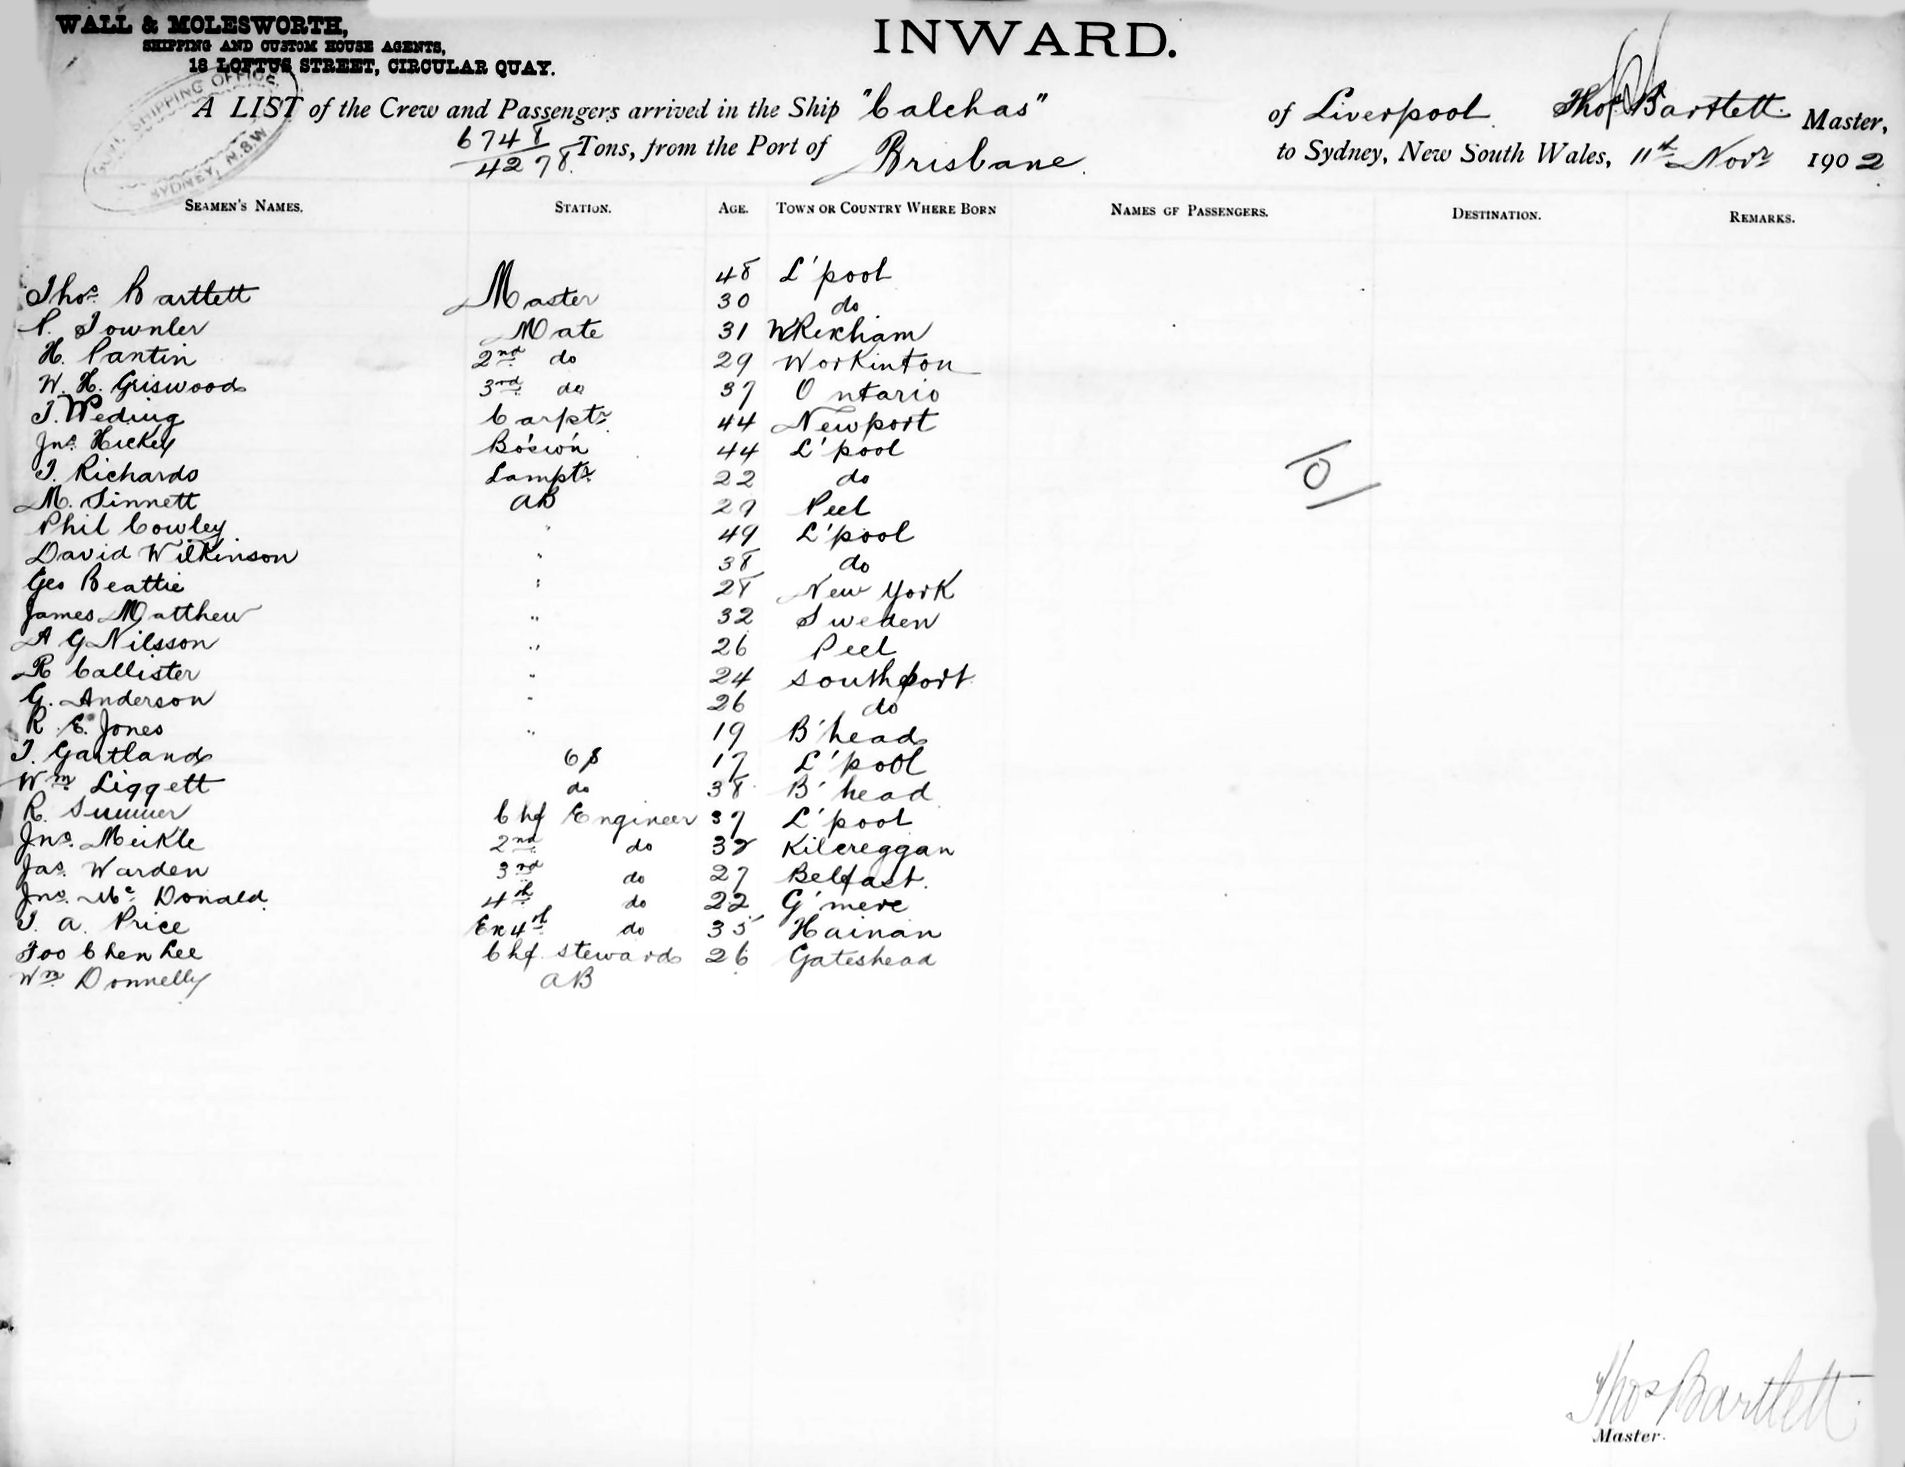 WALL & MOLESWORTH,
SHIPPING AND CUSTOM HOUSE AGENTS,
18 LOFTUS STREET, CIRCULAR QUAY.
INWARD.
SHIPPING OFFICE
SYDNEY, N.S.W.
A LIST of the Crew and Passengers arrived in the Ship "Calchas" of Liverpool Thos Bartlett Master,
6748
4278 Tons, from the Port of Brisbane to Sydney, New South Wales, 11th Novr 1902
SEAMEN'S NAMES. STATION. AGE. TOWN OR COUNTRY WHERE BORN NAMES OF PASSENGERS. DESTINATION. REMARKS.
Thos Bartlett Master 48 L'pool
P. Townler Mate 30 do
H. Pantin 2nd do 31 WRexham
W. H. Griswood 3rd do 29 Workinton
T. Weding Carptr 37 Ontario
Jno Hickey Bo'sw'n 44 Newport
T. Richards Lamptr 44 L'pool
M. Sinnett AB 22 do
Phil Cowley " 29 Peel
David Wilkinson " 49 L'pool
Geo Beattie " 38 do
James Matthew " 28 New York
A G Nilsson " 32 Sweden
R Callister " 26 Peel
G. Anderson " 24 Southport
R. E. Jones 26 do
T. Gartland " 19 B'head
Wm Liggett OS 17 L'pool
R. Sumner do 38 B'head
Jno. Meikle Chf Engineer 37 L'pool
Jas. Warden 2nd do 32 Kilcreggan
Jno. Mc Donald 3rd do 27 Belfast.
T. A. Price 4th do 22 G'mere
Foo Chen Lee Chf Steward 35 Hainan
Wm Donnelly AB 26 Gateshead
Thos Bartlett
Master.